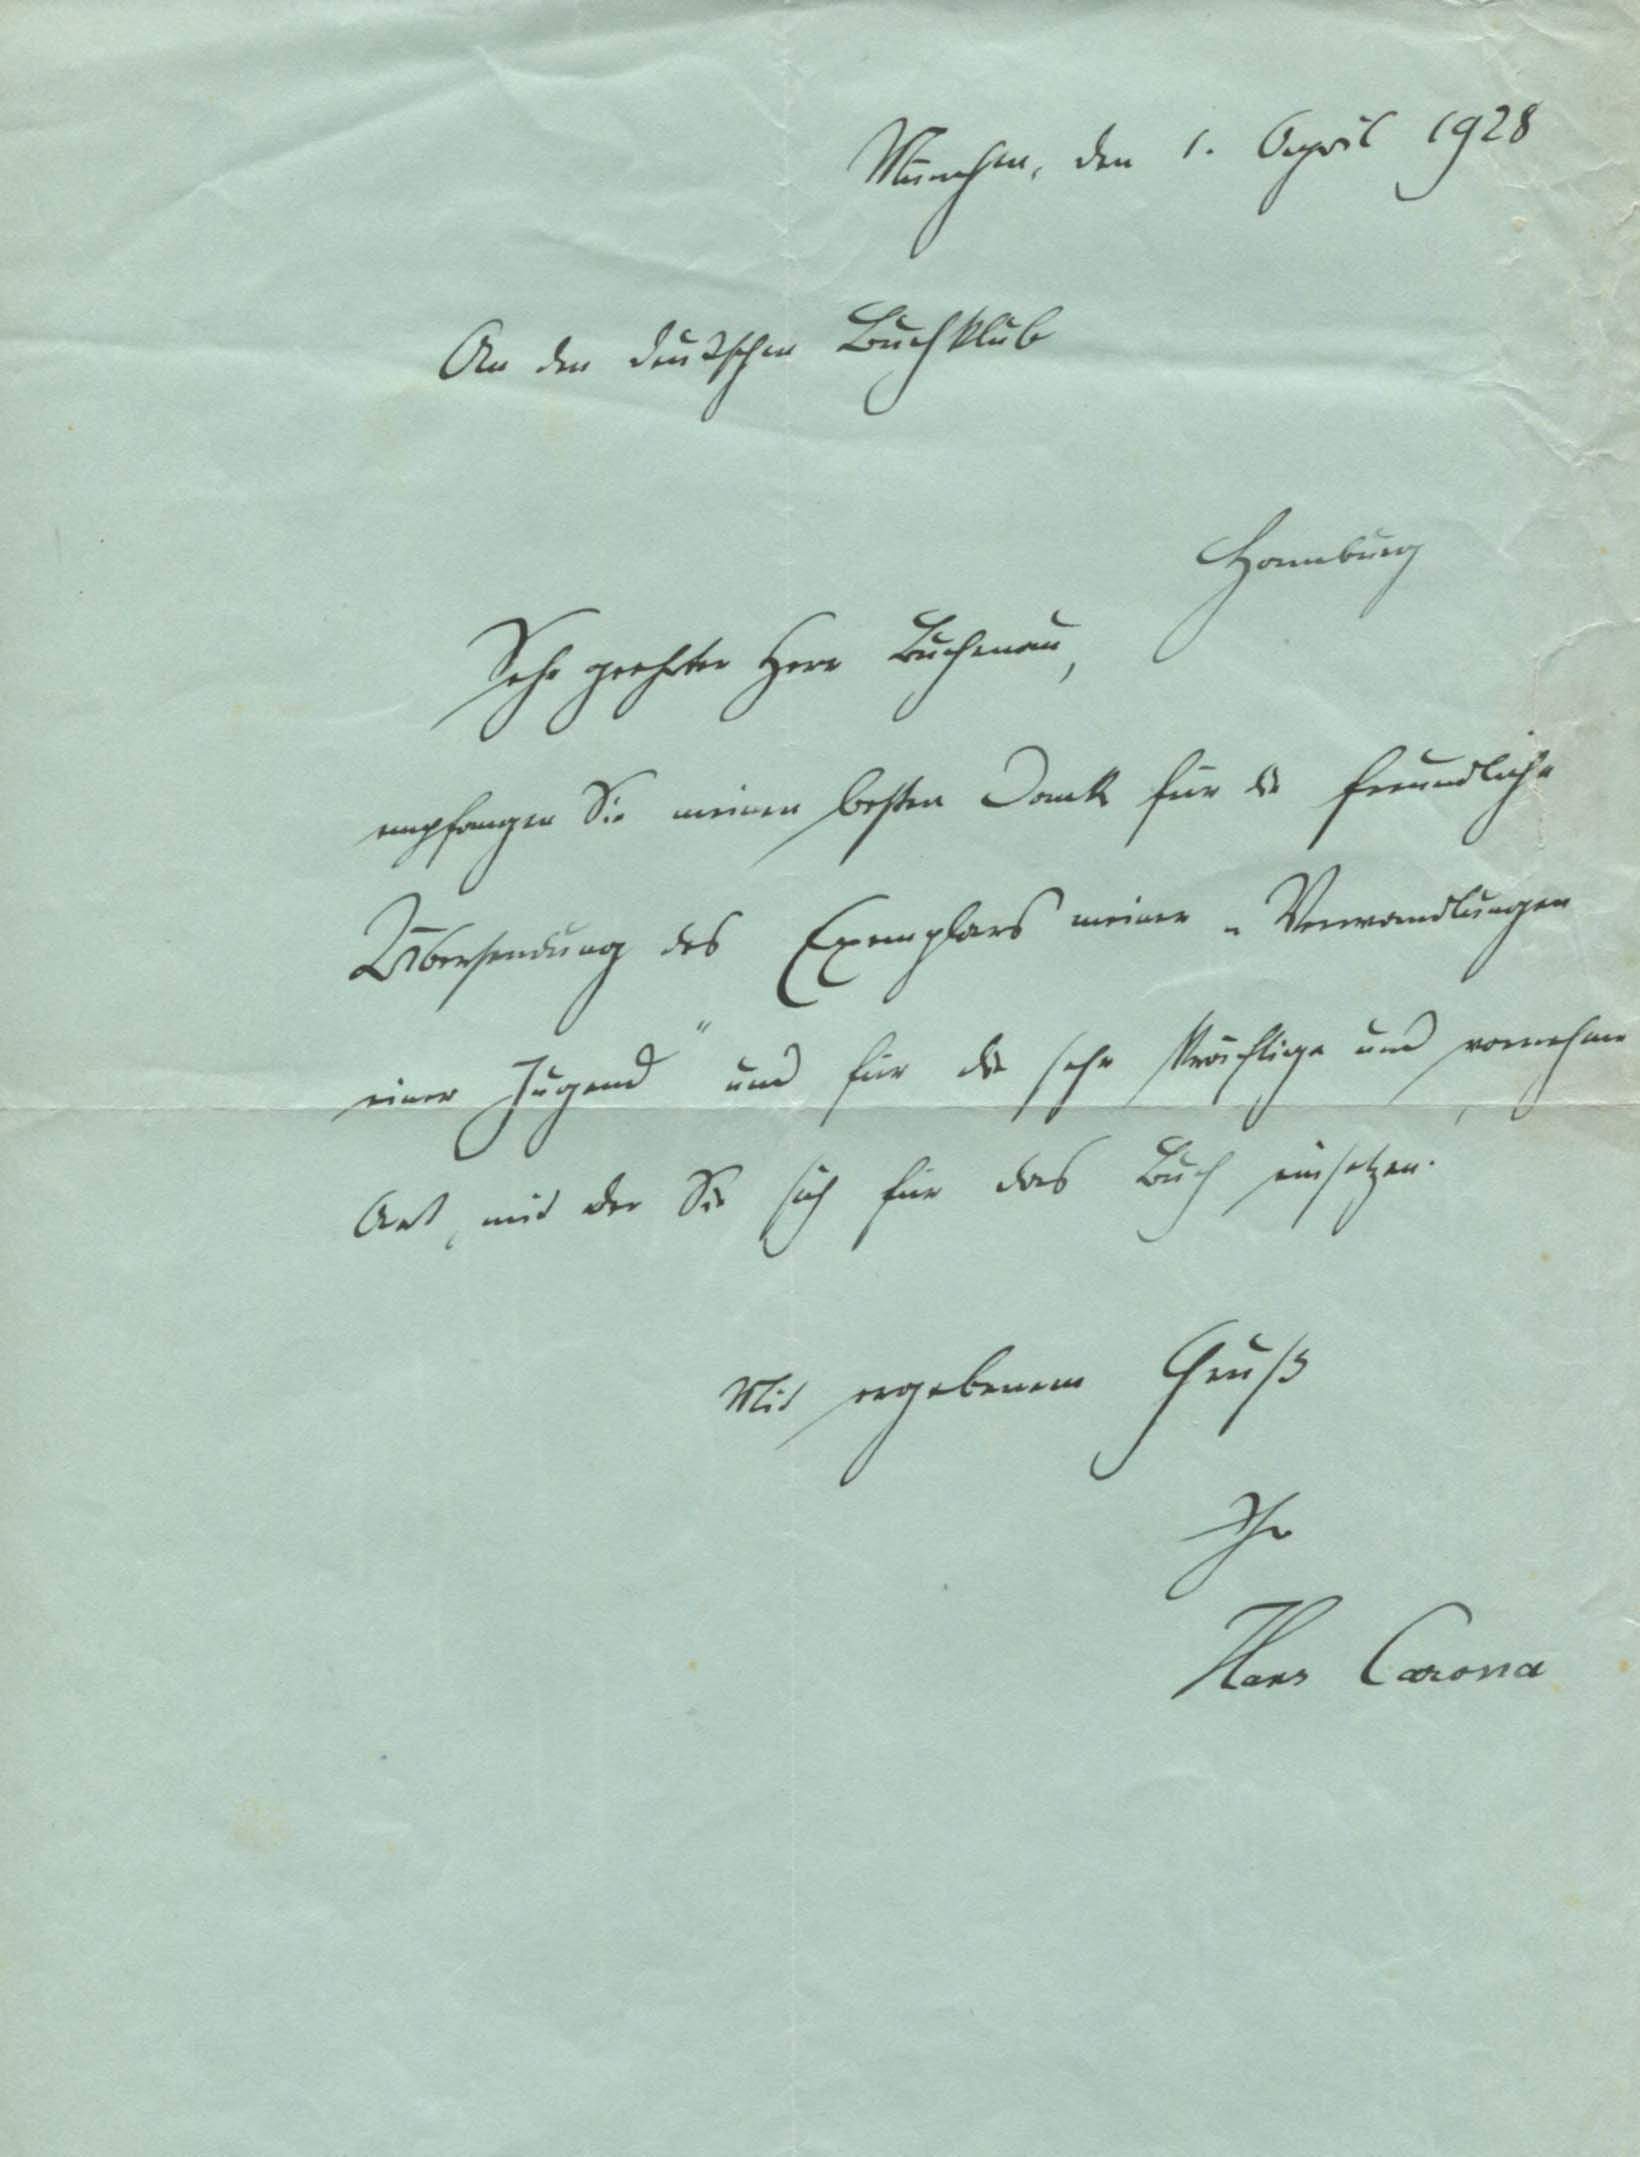 München, den 1. April 1928
An den deutschen Buchklub
Hamburg
Sehr geehrter Herr Buchenau,
empfangen Sie meinen besten Dank für die freundliche
Übersendung des Exemplars meiner „Verwandlungen
einer Jugend" und für die sehr kräftige und vornehme
Art, mit der Sie sich für das Buch einsetzen.
Mit ergebenem Gruß
Ihr
Hans Carossa